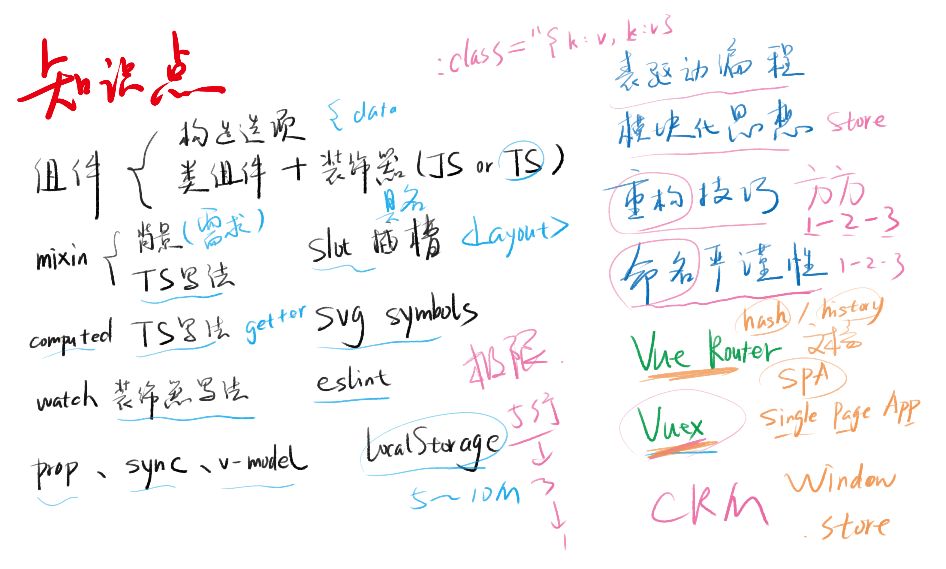 知识点
:class="{k:v, k:v}
组件
构造选项 {data
类组件 + 装饰器(JS or TS)
mixin
背景(需求)
TS写法
具名
slot 插槽 <Layout>
computed TS写法 getter
svg symbols
watch 装饰器写法
eslint
prop、sync、v-model
localStorage
5~10M
极限
5行
↓
3
↓
1
表驱动编程
模块化思想 store
重构技巧 方方
1-2-3
命名严谨性 1-2-3
hash / history
Vue Router
SPA
Vuex Single Page App
CRM
Window
.store